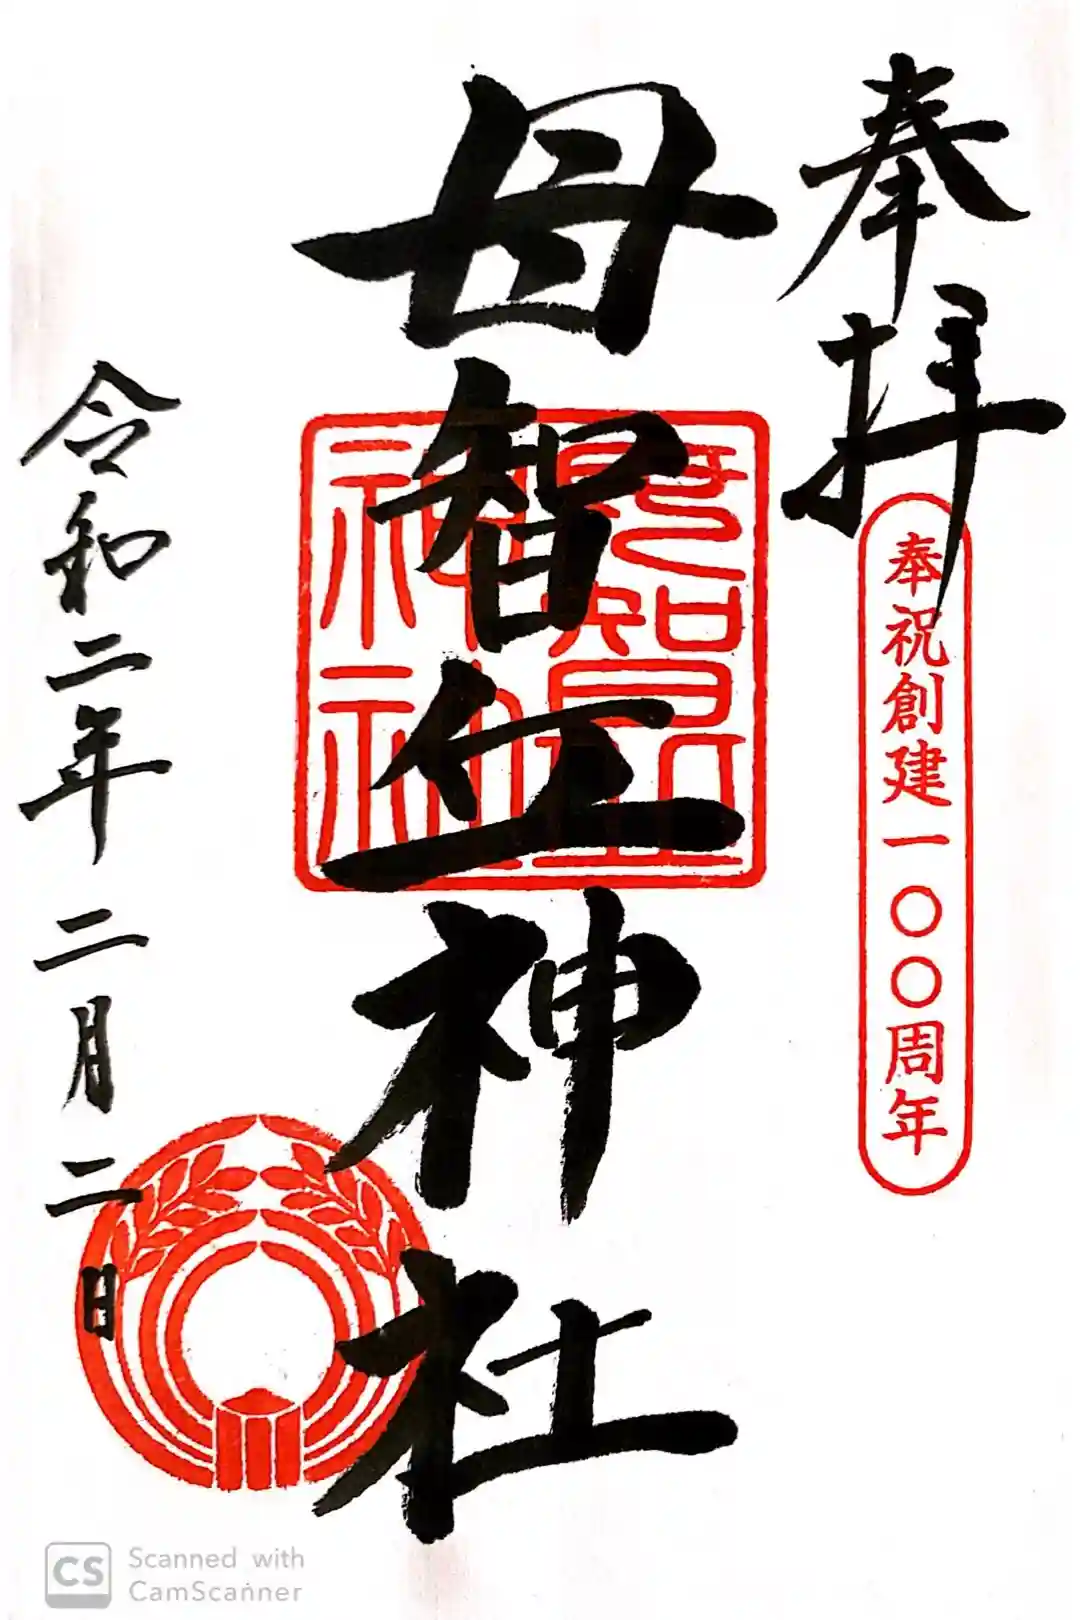 奉拝
奉祝創建一〇〇周年
母智丘神社
令和二年二月二日
CS Scanned with
CamScanner